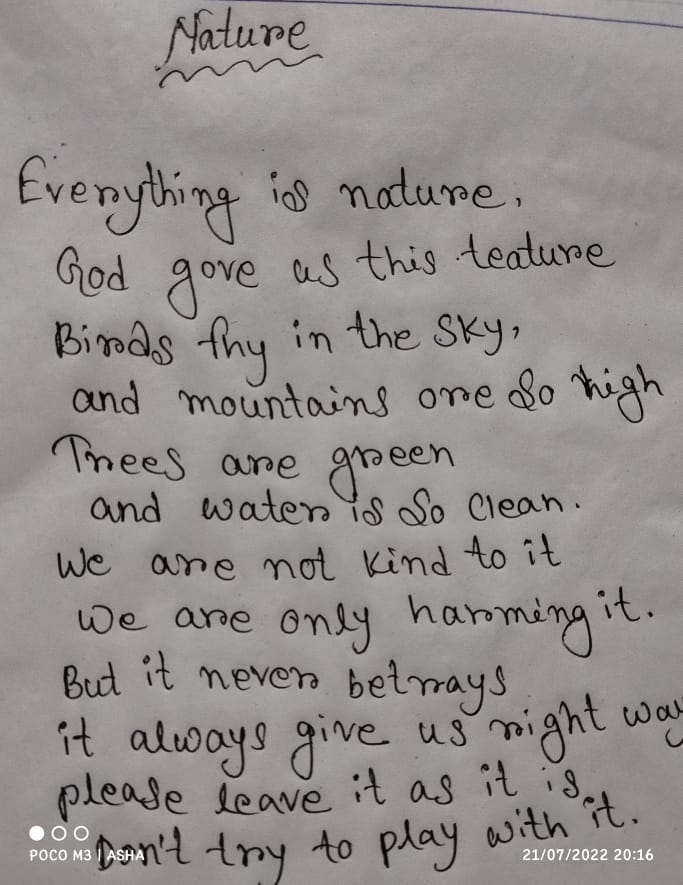 Nature
Everything is nature,
God gave us this teature
Birds fhy in the sky,
and mountains are so high
Trees are green
and water is so clean.
We are not kind to it
We are only harming it.
But it never betrays
it always give us right way
please leave it as it is.
Don't try to play with it.
POCO M3 | ASHA
21/07/2022 20:16